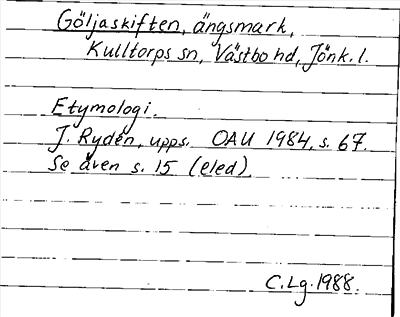 Göljaskiften, ängsmark,
Kulltorps sn, Västbo hd, Jönk. l.
Etymologi.
J. Rydén, upps. OAU 1984, s. 67.
Se även s. 15 (eled)
C. Lg. 1988.